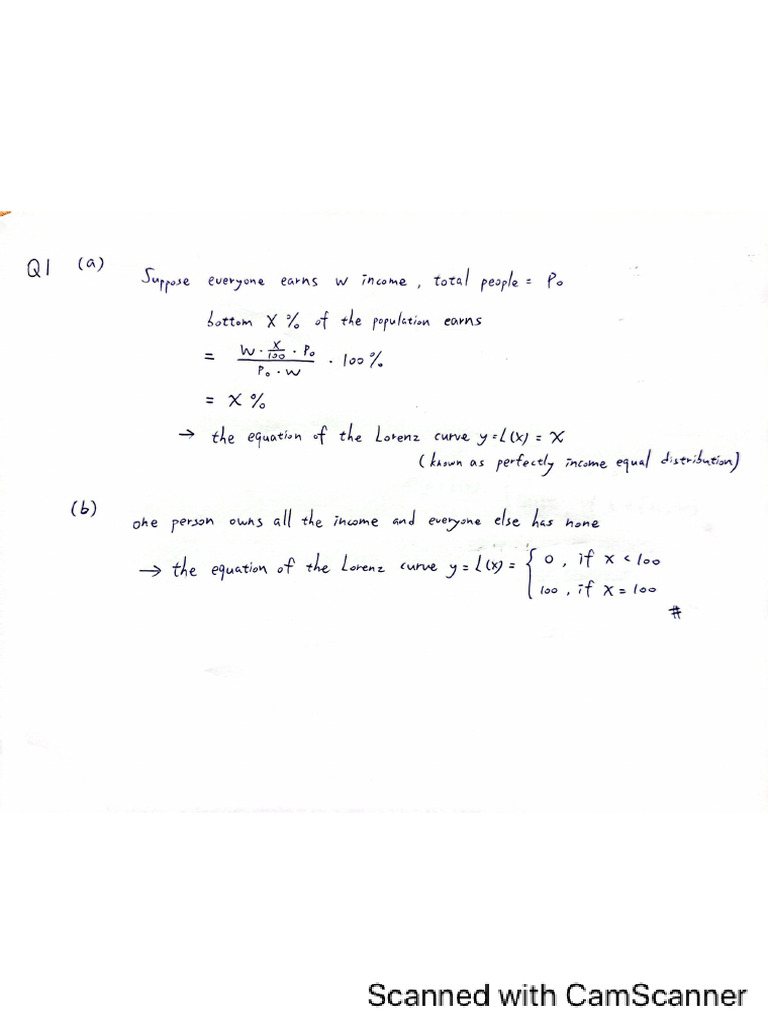 Q1 (a)
Suppose everyone earns w income, total people = P₀
bottom X % of the population earns
= \frac{W \cdot \frac{X}{100} \cdot P₀}{P₀ \cdot W} \cdot 100%
= X %
→ the equation of the Lorenz curve y=L(x) = X
(known as perfectly income equal distribution)
(b)
one person owns all the income and everyone else has none
→ the equation of the Lorenz curve y = L(x) = { 0, if x < 100
100, if x = 100
#
Scanned with CamScanner